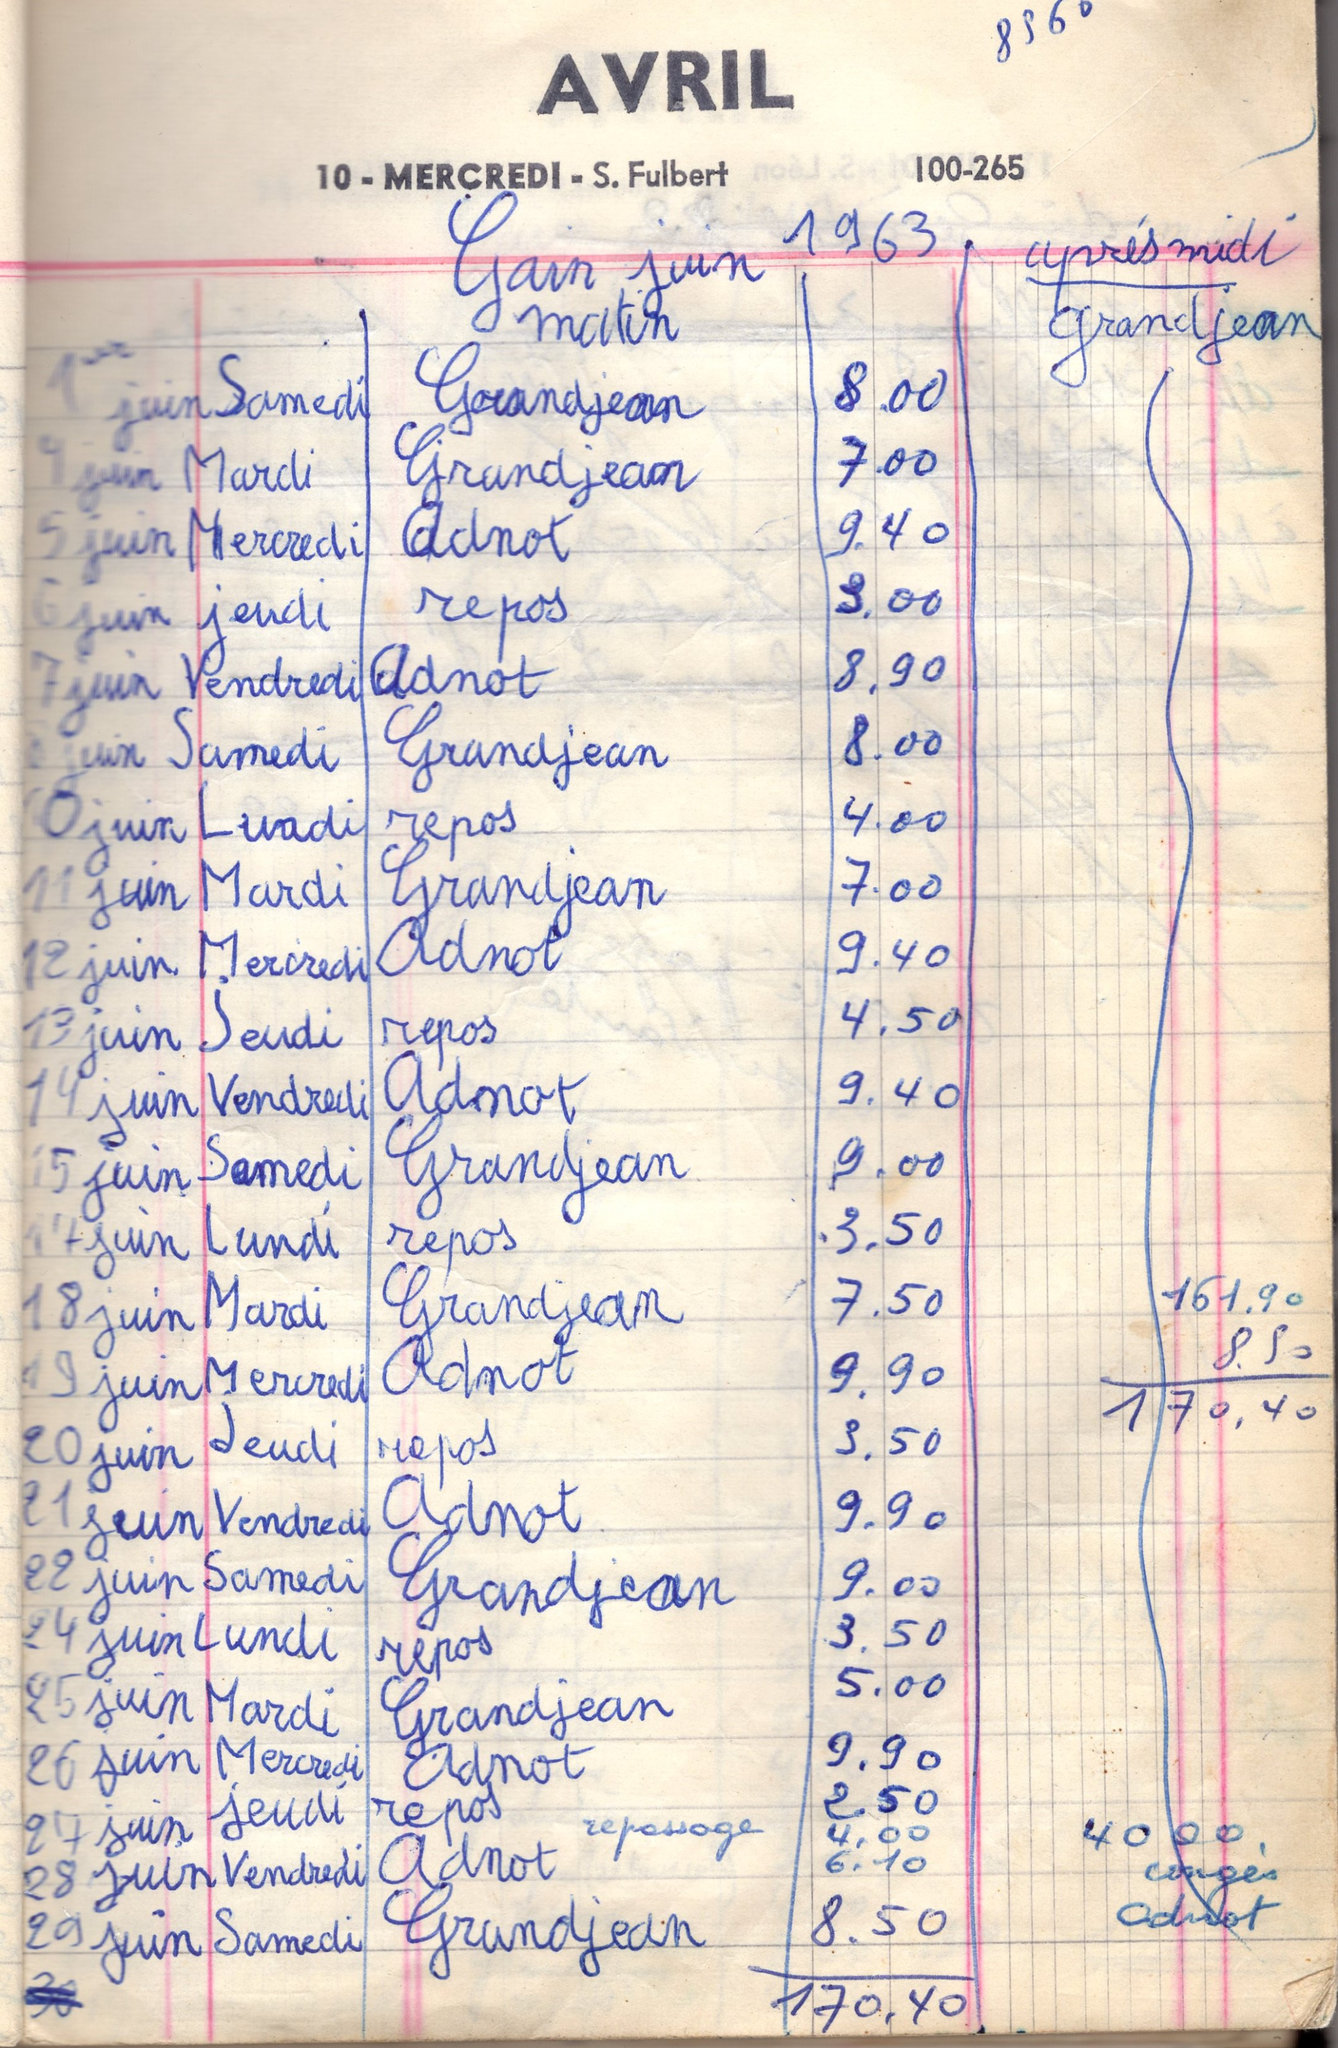 8360
AVRIL
10 - MERCREDI - S. Fulbert 100-265
Gain juin 1963. après midi
matin Grandjean
1er juin Samedi Grandjean 8.00
4 juin Mardi Grandjean 7.00
5 juin Mercredi Adnot 9.40
6 juin jeudi repos 3.00
7 juin Vendredi Adnot 8.90
8 juin Samedi Grandjean 8.00
10 juin Lundi repos 4.00
11 juin Mardi Grandjean 7.00
12 juin Mercredi Adnot 9.40
13 juin Jeudi repos 4.50
14 juin Vendredi Adnot 9.40
15 juin Samedi Grandjean 9.00
17 juin Lundi repos 3.50
18 juin Mardi Grandjean 7.50 161.90
8.50
19 juin Mercredi Adnot 9.90
170,40
20 juin Jeudi repos 3.50
21 juin Vendredi Adnot 9.90
22 juin Samedi Grandjean 9.00
24 juin Lundi repos 3.50
25 juin Mardi Grandjean 5.00
26 juin Mercredi Adnot 9.90
27 juin jeudi repos 2.50
repassage 4.00 4000.
28 juin Vendredi Adnot 6.10 congés
29 juin Samedi Grandjean 8.50 Adnot
30
170,40